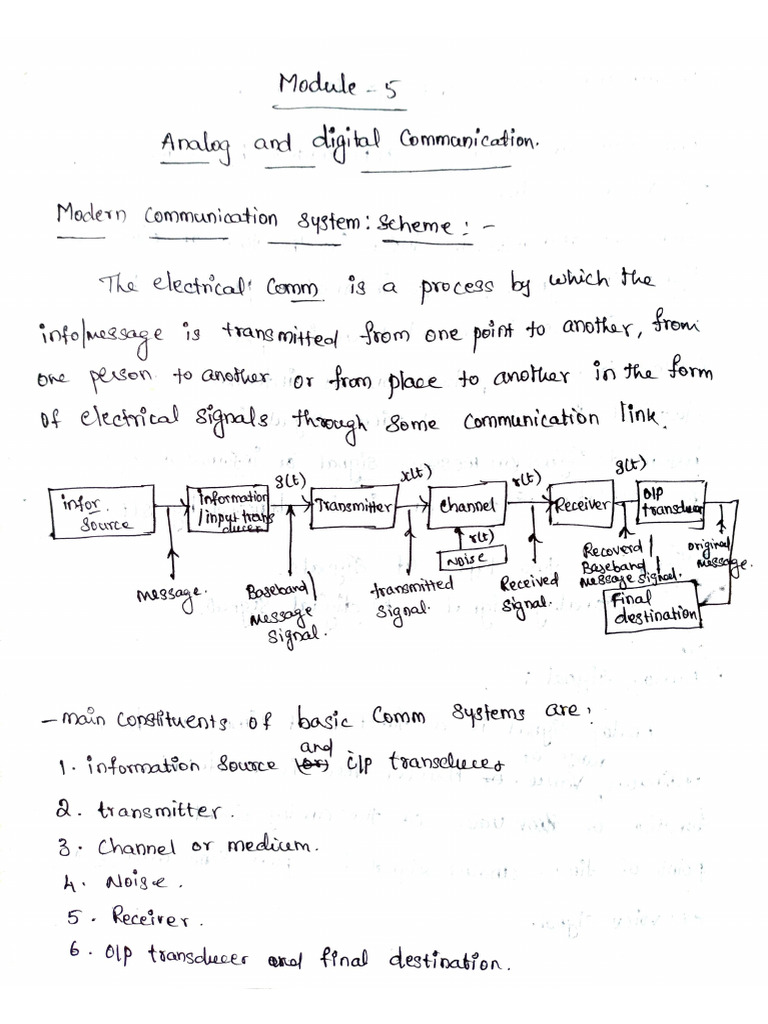 Module - 5
Analog and digital Communication.
Modern Communication System: Scheme: -
The electrical Comm is a process by which the
info/message is transmitted from one point to another, from
one person to another or from place to another in the form
of electrical signals through some communication link.
infor. Source
information /input transducer
g(t)
Transmitter
x(t)
Channel
r(t)
Receiver
g(t)
O/P transducer
r(t)
Noise
message.
Baseband/ Message Signal.
transmitted Signal.
Received Signal.
Recoverd/ Baseband/ Message signal.
original message.
Final destination
- main constituents of basic Comm Systems are:
and
1. information Source (or) i/p transducer
2. transmitter.
3. Channel or medium.
4. Noise.
5. Receiver.
6. O/P transducer and final destination.